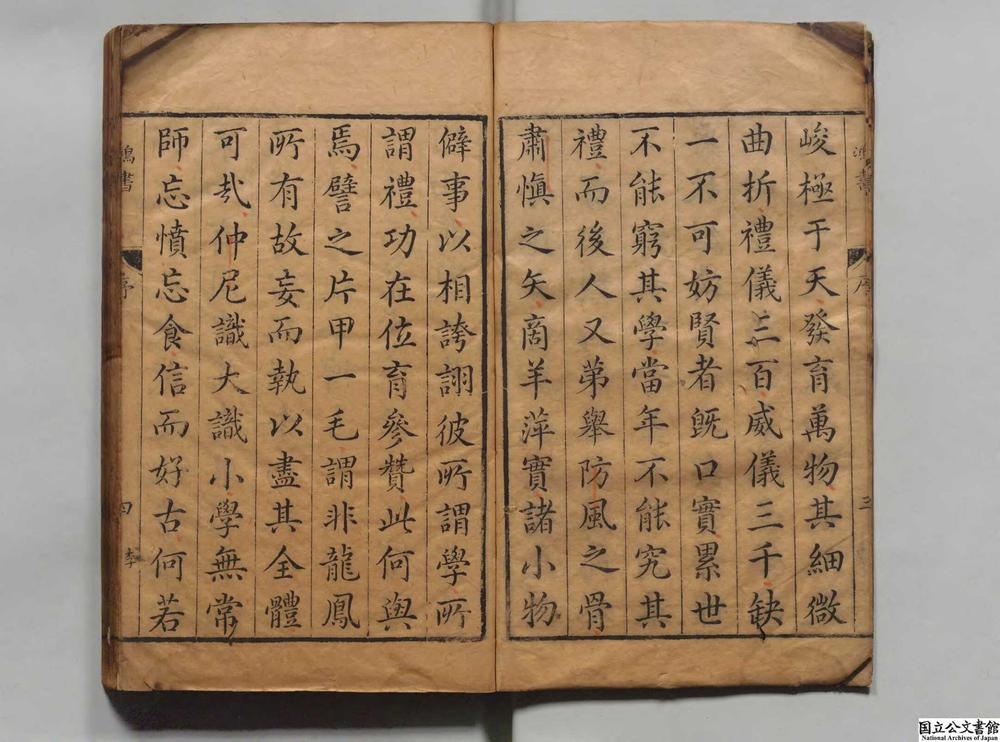 峻極于天發育萬物其細微
曲折禮儀三百威儀三千缺
一不可妨賢者既口實累世
不能窮其學當年不能究其
禮而後人又第舉防風之骨
肅愼之矢商羊萍實諸小物
僻事以相誇詡彼所謂學所
謂禮功在位育參贊此何與
焉譬之片甲一毛謂非龍鳳
所有故妄而執以盡其全體
可㢤仲尼識大識小學無常
師忘憤忘食信而好古何若
序
三
鴻書
序
四
李
国立公文書館
National Archives of Japan